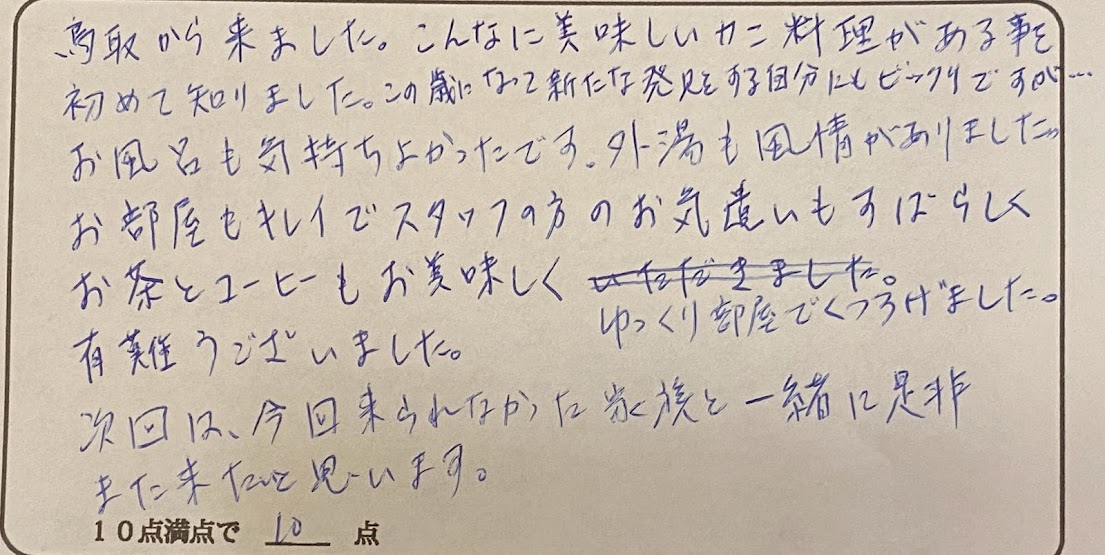 鳥取から来ました。こんなに美味しいカニ料理がある事を
初めて知りました。この歳になって新たな発見をする自分にもビックリですが…
お風呂も気持ちよかったです。外湯も風情がありました。
お部屋もキレイでスタッフの方のお気遣いもすばらしく
お茶とコーヒーもお美味しく いただきました。
ゆっくり部屋でくつろげました。
有難うございました。
次回は、今回来られなかった家族と一緒に是非
また来たいと思います。
10点満点で 10 点